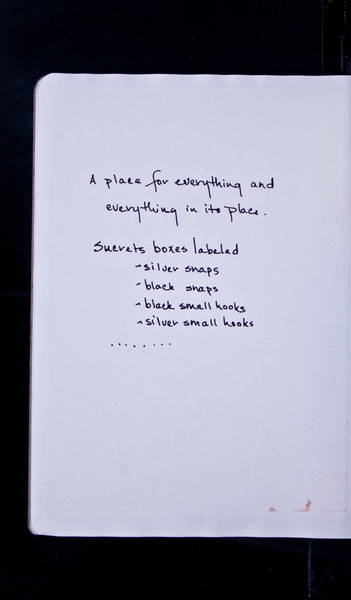 A place for everything and
everything in its place.
Sucrets boxes labeled
- silver snaps
- black snaps
- black small hooks
- silver small hooks
.........